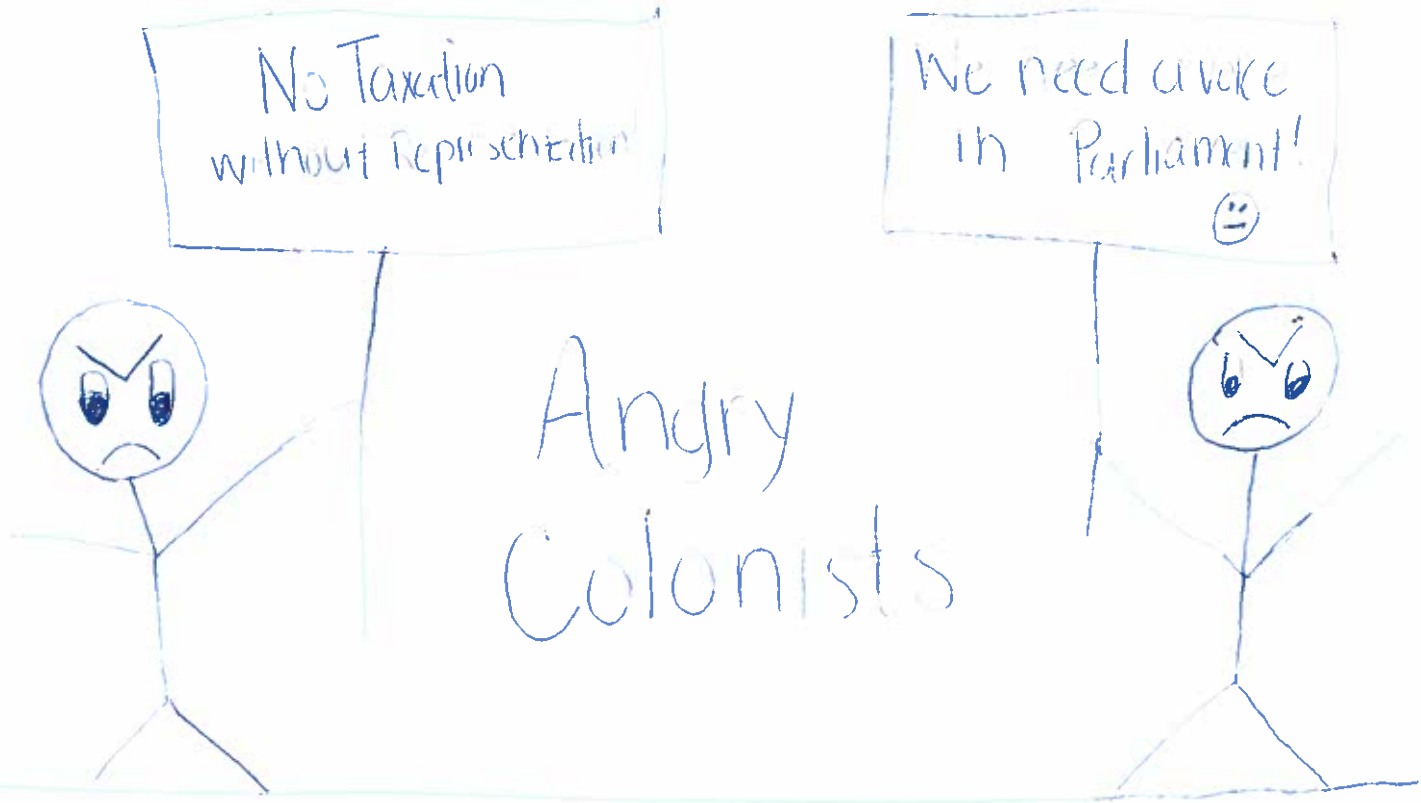 No Taxation
without Representation
We need a voice
in Parliament!
Angry
Colonists